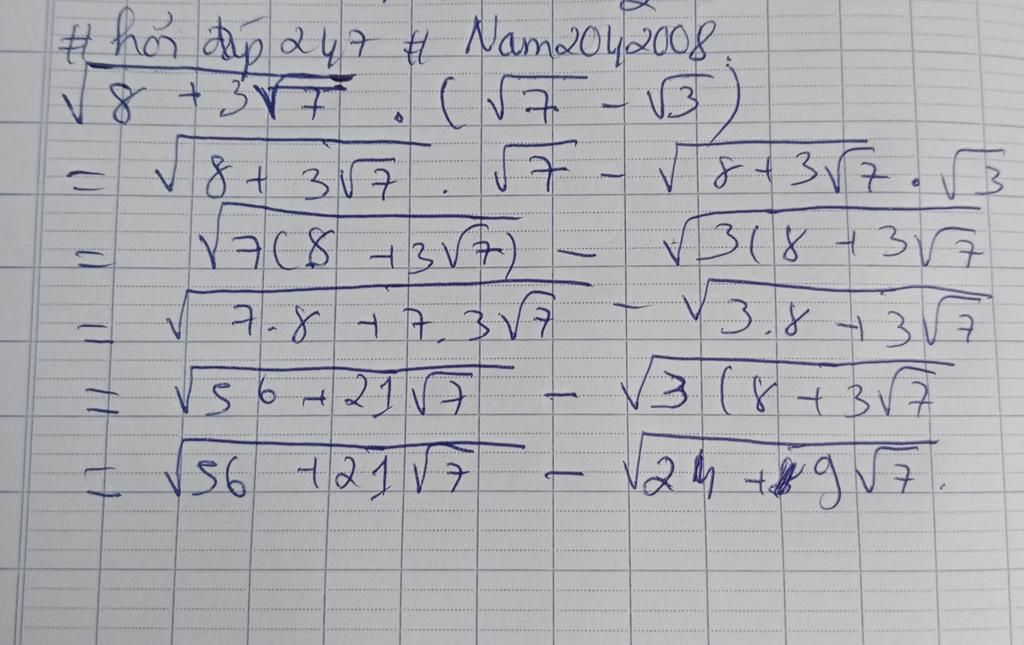 # hỏi đáp 247 # Nam2042008.
√(8 + 3√7) . (√7 - √3)
= √(8 + 3√7) . √7 - √(8 + 3√7) . √3
= √(7(8 + 3√7)) - √(3(8 + 3√7
= √(7.8 + 7.3√7) - √(3.8 + 3√7)
= √(56 + 21√7) - √(3(8 + 3√7
= √(56 + 21√7) - √(24 + 9√7).